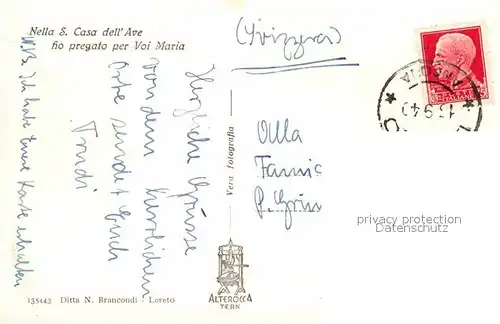 Nella S. Casa dell'Ave
ho pregato per Voi Maria
(Svizzera)
N.B. Ich habe Eure Karte erhalten
Herzliche Grüsse
von dem herrlichen
Orte sendet Euch
Trudi
Vera Fotografia
Olla
P. Grin
privacy protection
Datenschutz
ALTEROCCA
TERNI
135443 Ditta N. Brancondi - Loreto